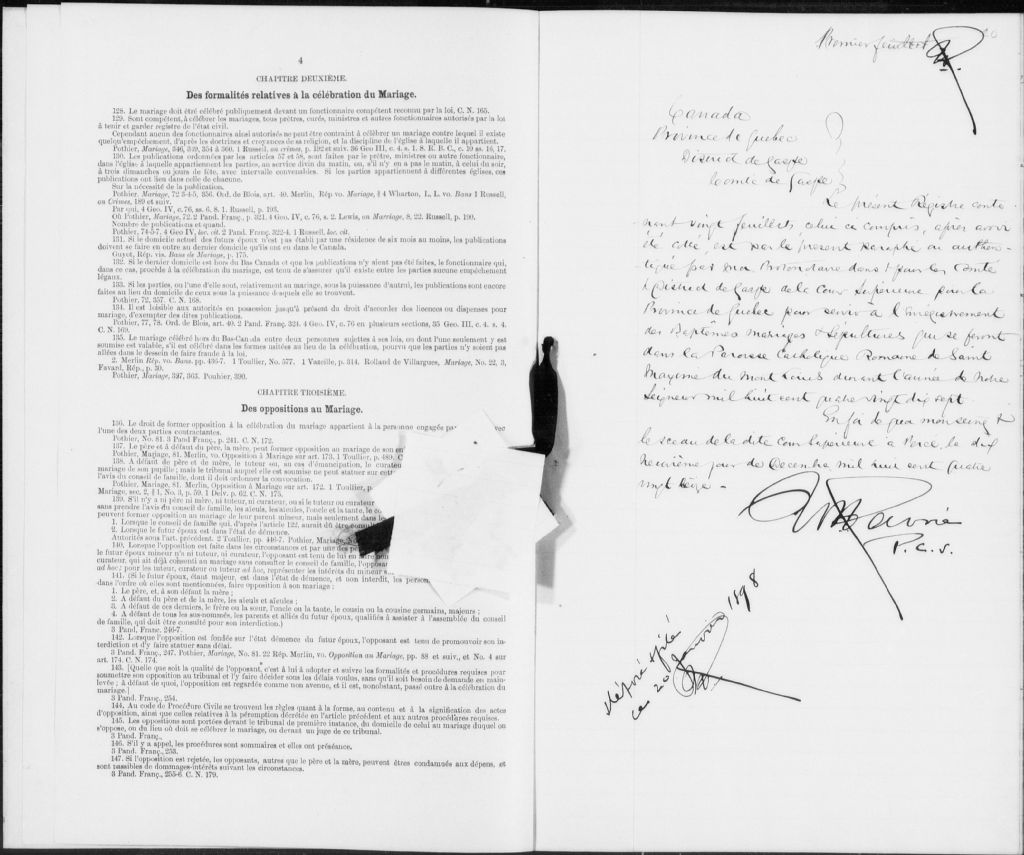 4
CHAPITRE DEUXIÈME.
Des formalités relatives à la célébration du Mariage.
128. Le mariage doit être célébré publiquement devant un fonctionnaire compétent reconnu par la loi, C. N. 165.
129. Sont compétent, à célébrer les mariages, tous prêtres, curés, ministres et autres fonctionnaires autorisés par la loi
à tenir et garder registre de l'état civil.
Cependant aucun des fonctionnaires ainsi autorisés ne peut être contraint à célébrer un mariage contre lequel il existe
quelqu'empêchement, d'après les doctrines et croyances de sa religion, et la discipline de l'église à laquelle il appartient.
Pothier, Mariage, 346, 349, 354 & 360. 1 Russell, on crimes, p. 192 et suiv. 36 Geo III, c. 4, s. 1. S. R. B. C., c. 19 ss. 16, 17.
130. Les publications ordonnées par les articles 57 et 58, sont faites par le prêtre, ministre ou autre fonctionnaire,
dans l'église à laquelle appartiennent les parties, au service divin du matin, ou, s'il n'y en a pas le matin, à celui du soir,
à trois dimanches ou jours de fête, avec intervalle convenables. Si les parties appartiennent à différentes églises, ces
publications ont lieu dans chacune.
Sur la nécessité de la publication.
Pothier, Mariage, 72 3-4-5, 356. Ord. de Blois, art. 40. Merlin, Rép vo. Mariage, § 4 Wharton, L. L. vo. Bans 1 Russell,
on Crimes, 189 et suiv.
Par qui, 4 Geo. IV, c. 76, ss. 6, 8. 1. Russell, p. 193.
Où Pothier, Mariage, 72. 2 Pand. Franç., p. 321. 4 Geo. IV, c. 76, s. 2. Lewis, on Marriage, 8, 22. Russell, p. 190.
Nombre de publications et quand.
Pothier, 74-5-7. 4 Geo IV, loc. cit. 2 Pand. Franç. 322-4. 1 Russell, loc. cit.
131. Si le domicile actuel des futurs époux n'est pas établi par une résidence de six mois au moins, les publications
doivent se faire en outre au dernier domicile qu'ils ont eu dans le Canada.
Guyot, Rép. vis. Bans de Mariage, p. 175.
132. Si le dernier domicile est hors du Bas Canada et que les publications n'y aient pas été faites, le fonctionnaire qui,
dans ce cas, procède à la célébration du mariage, est tenu de s'assurer qu'il existe entre les parties aucune empêchement
légaux.
133. Si les parties, ou l'une d'elle sont, relativement au mariage, sous la puissance d'autrui, les publications sont encore
faites au lieu du domicile de ceux sous la puissance desquels elle se trouvent.
Pothier, 72, 357. C. N. 168.
134. Il est loisible aux autorités en possession jusqu'à présent du droit d'accorder des licences ou dispenses pour
mariage, d'exempter des dites publications.
Pothier, 77, 78. Ord. de Blois, art. 40. 2 Pand. Franç. 321. 4 Geo. IV, c. 76 en plusieurs sections, 35 Geo. III, c. 4. s. 4.
C. N. 169.
135. Le mariage célébré hors du Bas-Canada entre deux personnes sujettes à ses lois, ou dont l'une seulement y est
soumise est valable, s'il est célébré dans les formes usitées au lieu de la célébration, pourvu que les parties n'y soient pas
allées dans le dessein de faire fraude à la loi.
2. Merlin Rép. vo. Bans, pp. 436-7. 1 Toullier, No. 577. 1 Vazeille, p. 314. Rolland de Villargues, Mariage, No. 22, 3,
Favard, Rép., p. 30.
Pothier, Mariage, 397, 363. Pouhier, 390.
CHAPITRE TROISIÈME.
Des oppositions au Mariage.
136. Le droit de former opposition à la célébration du mariage appartient à la personne engagée par avec
l'une des deux parties contractantes.
Pothier, No. 81. 3 Pand Franç., p. 241. C. N. 172.
137. Le père et à défaut du père, la mère, peut former opposition au mariage de son
Pothier, Mariage, 81. Merlin, vo. Opposition à Mariage sur art. 173. 1 Toullier, p. 489.
138. A défaut de père et de mère, le tuteur ou, au cas d'émancipation, le
mariage de son pupille; mais le tribunal auquel elle est soumise ne peut statuer sur
l'avis du conseil de famille, dont il doit ordonner la convocation.
Pothier, Mariage, 81. Merlin, Opposition à Mariage sur art. 172. 1 Toullier, p.
Mariage, sec. 2, § 1, No. 3, p. 59. 1 Delv. p. 62. C. N. 175.
139. S'il n'y a ni père ni mère, ni tuteur, ni curateur, ou si le tuteur ou curateur
sans prendre l'avis du conseil de famille, les aïeuls, l'oncle et la tante, le
peuvent former opposition au mariage de leur parent mineur, mais seulement dans
1. Lorsque le conseil de famille qui, d'après l'article 122, aurait dû être
2. Lorsque le futur époux est dans l'état de démence.
Autorités sous l'art. précédent. 2 Toullier, pp. 446-7. Pothier, Mariage,
140. Lorsque l'opposition est faite dans les circonstances et par une des
le futur époux mineur n'a ni tuteur, ni curateur, l'opposant est tenu de lui
curateur, qui ait déjà consenti au mariage sans consulter le conseil de famille,
ad hoc; pour les tuteur, curateur ou tuteur ad hoc, représenter les intérêts du mineur
141. (Si le futur époux, étant majeur, est dans l'état de démence, et non interdit, les
dans l'ordre où elles sont mentionnées, faire opposition à son mariage:
1. Le père, et, à son défaut la mère;
2. A défaut du père et de la mère, les aïeuls et aïeules;
3. A défaut de ces derniers, le frère ou la sœur, l'oncle ou la tante, le cousin ou la cousine germains, majeurs;
4. A défaut de tous les sus-nommés, les parents et alliés du futur époux, qualifiés à assister à l'assemblée du conseil
de famille, qui doit être consulté pour son interdiction.)
3 Pand, Franc. 246-7.
142. Lorsque l'opposition est fondée sur l'état démence du futur époux, l'opposant est tenu de promouvoir son in-
terdiction et d'y faire statuer sans délai.
3 Pand. Franç., 247. Pothier, Mariage, No. 81. 22 Rép. Merlin, vo. Opposition au Mariage, pp. 88 et suiv., et No. 4 sur
art. 174. C. N. 174.
143. [Quelle que soit la qualité de l'opposant, c'est à lui à adopter et suivre les formalités et procédures requises pour
soumettre son opposition au tribunal et l'y faire décider sous les délais voulus, sans qu'il soit besoin de demande en main-
levée; à défaut de quoi, l'opposition est regardée comme non avenue, et il est, nonobstant, passé outre à la célébration du
mariage.]
3 Pand. Franç., 254.
144. Au code de Procédure Civile se trouvent les règles quant à la forme, au contenu et à la signification des actes
d'opposition, ainsi que celles relatives à la péremption décrétée en l'article précédent et aux autres procédures requises.
145. Les oppositions sont portées devant le tribunal de première instance, du domicile de celui au mariage duquel on
s'oppose, ou du lieu où doit se célébrer le mariage, ou devant un juge de ce tribunal.
3 Pand. Franç.,
146. S'il y a appel, les procédures sont sommaires et elles ont préséance.
3 Pand. Franç., 253.
147. Si l'opposition est rejetée, les opposants, autres que le père et la mère, peuvent êtres condamnés aux dépens, et
sont passibles de dommages-intérêts suivant les circonstances.
3 Pand. Franç., 255-6. C. N. 179.
Premier feuillet
Canada
Province de Quebec
District de Gaspé
Comté de Gaspé
Le présent Régistre conte
nant vingt feuillets celui ci compris, après avoir
été coté est par le présent paraphe au authen-
tiqué par moi Protonotaire dans & pour le Comté
& District de Gaspé de la Cour Supérieure pour la
Province de Quebec pour servir à l'enregistrement
des Baptêmes mariages & Sépultures qui se feront
dans la Paroisse Catholique Romaine de Saint
Maxime du Mont Louis durant l'année de Notre
Seigneur mil huit cent quatre vingt dix sept.
En foi de quoi mon seing &
le sceau de la dite Cour Supérieure à Percé, le dix
neuvième jour de Decembre mil huit cent quatre
vingt seize -
P. C. S.
déposé & filé
ce 20 Janvier 1898